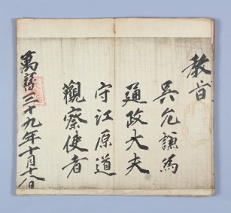 教旨
吳允謙爲
通政大夫
守江原道
觀察使者
萬曆三十九年十月十八日